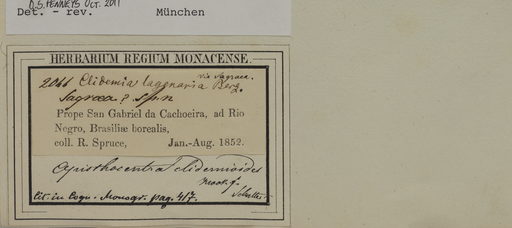 D.S. PENNEYS OCT. 2011
Det. - rev. München
HERBARIUM REGIUM MONACENSE.
via Sagraea.
2066 Clidemia lagenaria Berg.
Sagraea? sp. n
Prope San Gabriel da Cachoeira, ad Rio
Negro, Brasiliæ borealis,
coll. R. Spruce, Jan.-Aug. 1852.
Opisthocentra clidemioides
Hook. f.
Cit. in Cogn. Monogr. pag. 417.